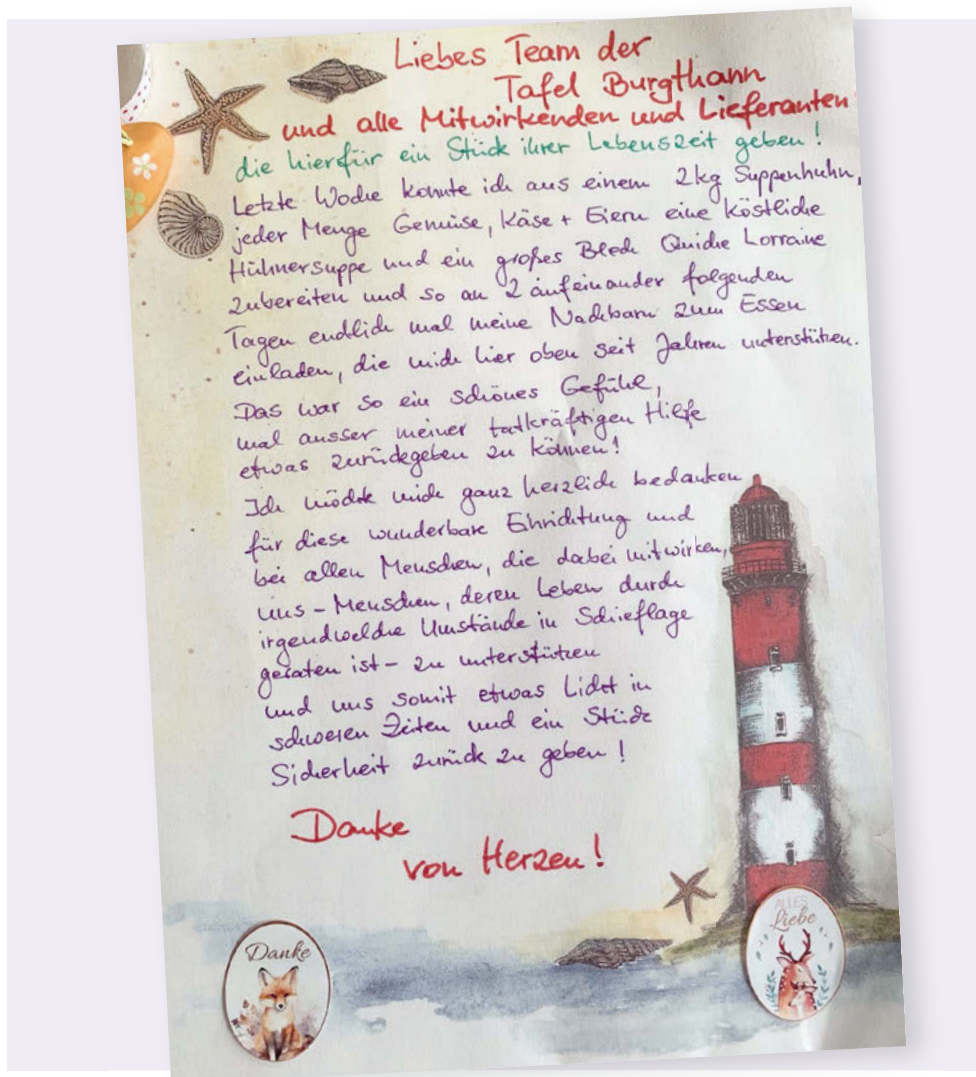 Liebes Team der
Tafel Burgthann
und alle Mitwirkenden und Lieferanten
die hierfür ein Stück ihrer Lebenszeit geben!
Letzte Woche konnte ich aus einem 2kg Suppenhuhn,
jeder Menge Gemüse, Käse + Eiern eine köstliche
Hühnersuppe und ein großes Blech Quiche Lorraine
zubereiten und so an 2 aufeinander folgenden
Tagen endlich mal meine Nachbarn zum Essen
einladen, die mich hier oben seit Jahren unterstützen.
Das war so ein schönes Gefühl,
mal ausser meiner tatkräftigen Hilfe
etwas zurückgeben zu können!
Ich möchte mich ganz herzlich bedanken
für diese wunderbare Einrichtung und
bei allen Menschen, die dabei mitwirken,
uns - Menschen, deren Leben durch
irgendwelche Umstände in Schieflage
geraten ist - zu unterstützen
und uns somit etwas Licht in
schweren Zeiten und ein Stück
Sicherheit zurück zu geben!
Danke
von Herzen!
Danke
ALLES
Liebe